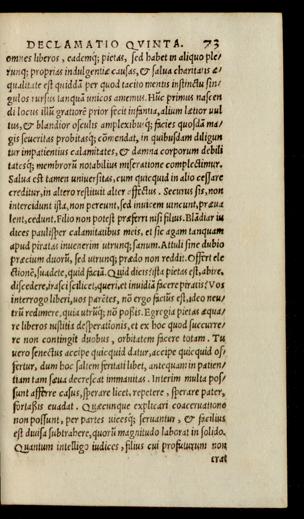 DECLAMATIO QVINTA. 73
omnes liberos, eademq; pietas, sed habet in aliquo ple/
runq; proprias indulgentiæ causas, & salua charitatis æ/
qualitate est quiddā per quod tacito mentis instinctu sin/
gulos rursus tanquā unicos amemus. Hūc primus nascen
di locus illū gratiorē prior fecit infantia, alium lætior uul
tus, & blandior osculis amplexibusq; facies quosdā ma/
gis seueritas probitasq; cōmendat, in quibusdam diligun
tur impatientius calamitates, & damna corporum debili
tatesq; membrorū notabilius miseratione complectimur.
Salua est tamen uniuersitas, cum quicquid in alio cessare
creditur, in altero restituit alter effectus. Securus sis, non
intercidunt ista, non pereunt, sed inuicem uincunt, præua
lent, cedunt. Filio non potest præferri nisi filius. Blādiar iu
dices paulisper calamitatibus meis, et sic agam tanquam
apud piratas inuenerim utrunq; sanum. Attuli sine dubio
præcium duorū, sed utrunq; prædo non reddit. Offert ele
ctionē, suadete, quid faciā. Quid dicis? ista pietas est, abire,
discedere, irasci scilicet, queri, et inuidiā facere piratis? Vos
interrogo liberi, uos parētes, nō ergo faciūs est, ideo neu/
trū redimere, quia utrūq; nō possis. Egregia pietas æqua/
re liberos iustitia desperationis, et ex hoc quod succurre/
re non contingit duobus, orbitatem facere totam. Tu
uero senectus accipe quicquid datur, accipe quicquid of/
fertur, dum hoc saltem feritati libet, antequam in patien/
tiam tam sæua decrescat immanitas. Interim multa pos/
sunt afferre casus, sperare licet, repetere, sperare pater,
fortassis euadat. Quæcunque explicari coaceruatione
non possunt, per partes uicesq; seruantur, & facilius
est diuisa subtrahere, quorū magnitudo laborat in solido.
Quantum intelligo iudices, filius cui profuturum non
erat